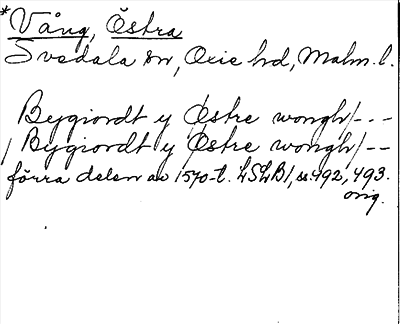 *Vång, Östra
Svedala sn, Oxie hd, Malm. l.
Bygiordt y Østre wongh/-.-
/ Bygiordt y Østre wongh/--
förra delen av 1570-t. LSLB1, ss. 492, 493.
orig.